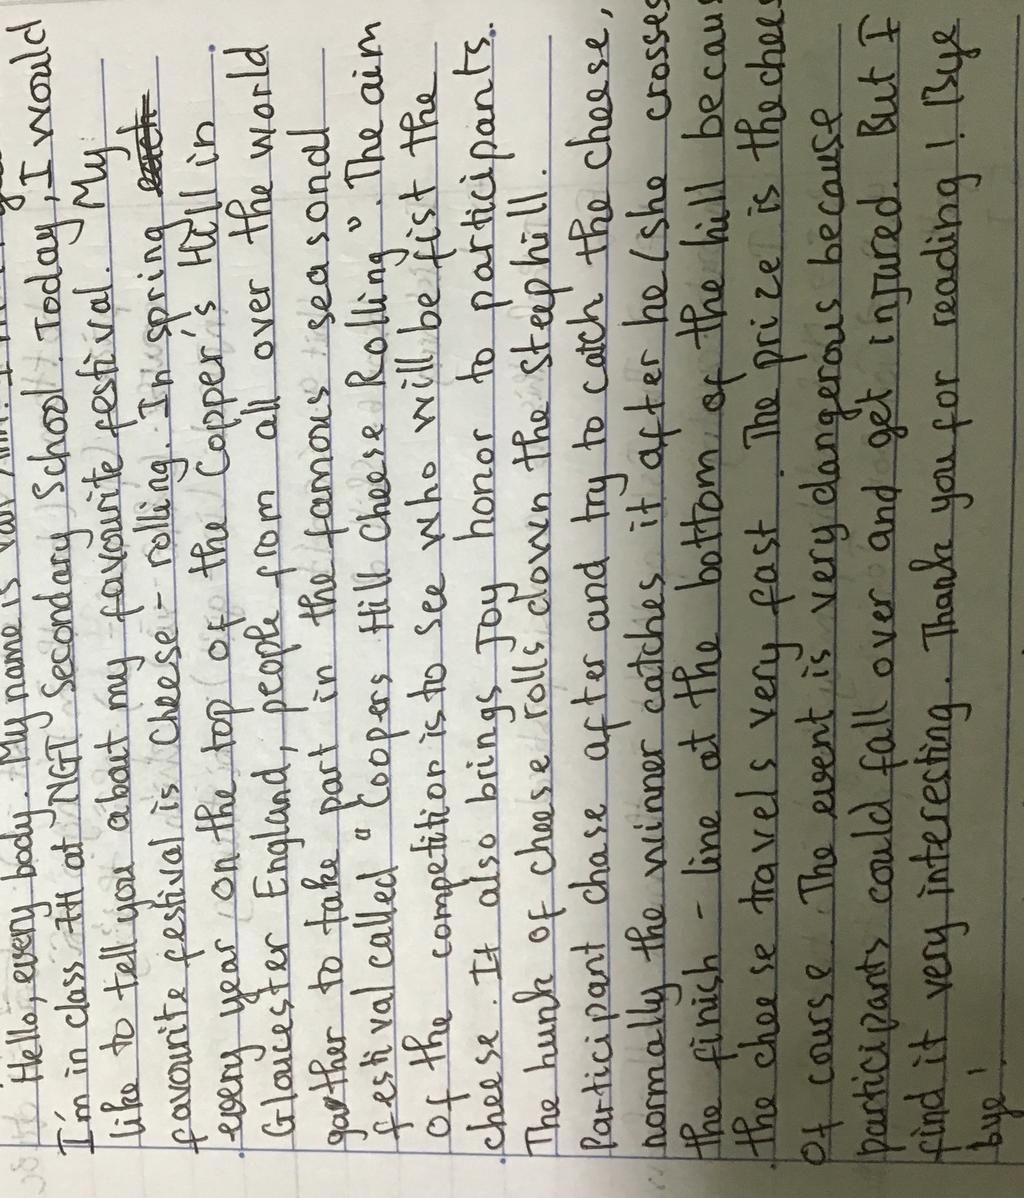 Hello, every body. My name is
I'm in class at NGT Secondary School. Today, I would
like to tell you about my favourite festival. My
favourite festival is cheese-rolling. In spring
every year on the top of the Copper's Hill in
Gloucester England, people from all over the world
gather to take part in the famous seasonal
festival called "Coopers Hill Cheese Rolling". The aim
of the competition is to see who will be fist the
cheese. It also brings Joy honor to participants.
The hunk of cheese rolls down the steephill.
Participant chase after and try to catch the cheese,
normally the winner catches it after he/she crosses
the finish-line at the bottom of the hill becau
the cheese travels very fast. The prize is the chees
of course. The event is very dangerous because
participants could fall over and get injured. But I
find it very interesting. Thank you for reading! Bye
bye!